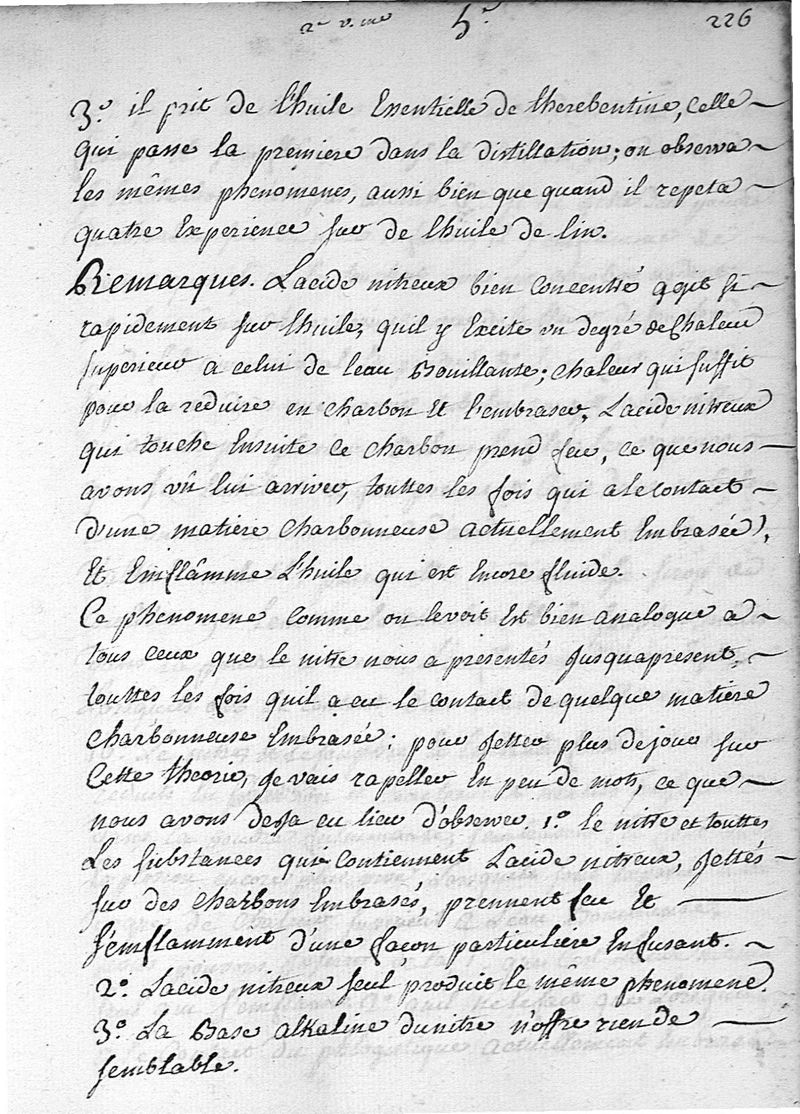 2e v. me 5e 226
3.° il prit de l'huile Essentielle de therebentine, Celle
qui passe la premiere dans la distillation; on observa
les mêmes phenomenes, aussi bien que quand il repeta
quatre Experience sur de l'huile de lin.
Remarques. L'acide nitreux bien Concentré agit si
rapidement sur l'huile, qu'il y Excite un degré de Chaleur
superieur a celui de l'eau Bouillante; chaleur qui suffit
pour la reduire en charbon Et l'embraser, L'acide nitreux
qui touche Ensuite ce charbon prend feu, ce que nous
avons vû lui arriver, touttes les fois qui a le contact
d'une matiere charbonneuse actuellement Embrasée,
Et Emflâmme L'huile qui est Encore fluide.
Ce phenomene comme on le voit Est bien analogue a
tous ceux que le nitre nous a presentés Jusquapresent,
touttes les fois qu'il a eu le contact de quelque matiere
charbonneuse Embrasée; pour Jetter plus de jour sur
Cette theorie, Je vais rapeller En peu de mots, ce que
nous avons deja eu lieu d'observer. 1.° le nitre et touttes
Les substances qui Contiennent L'acide nitreux, Jettés
sur des charbons Embrasés, prennent feu Et
s'emflamment d'une façon particuliere En fusant.
2.° L'acide nitreux seul produit le même phenomene.
3.° La Base alkaline du nitre n'offre rien de
semblable.